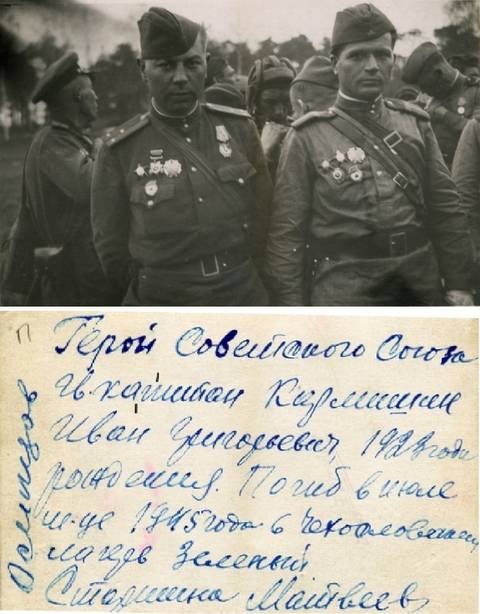 П
Герой Советского Союза
гв. капитан Кузмишин
Иван Григорьевич, 1923 года
рождения. Погиб в июле
м-це 1945 года в Чехословакии
лагерь Зеленый
Старшина Матвеев